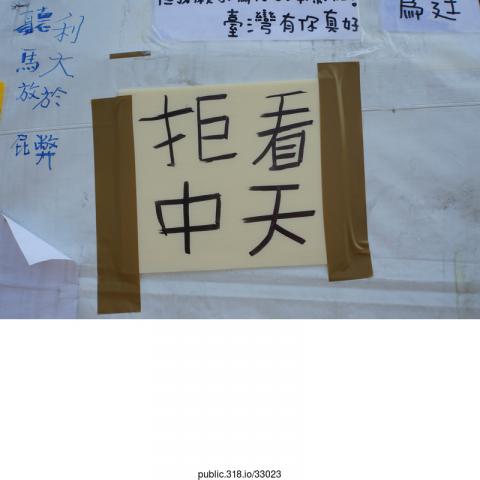 臺灣有你真好
聽利
馬大
放於
屁弊
拒看
中天
public.318.io/33023